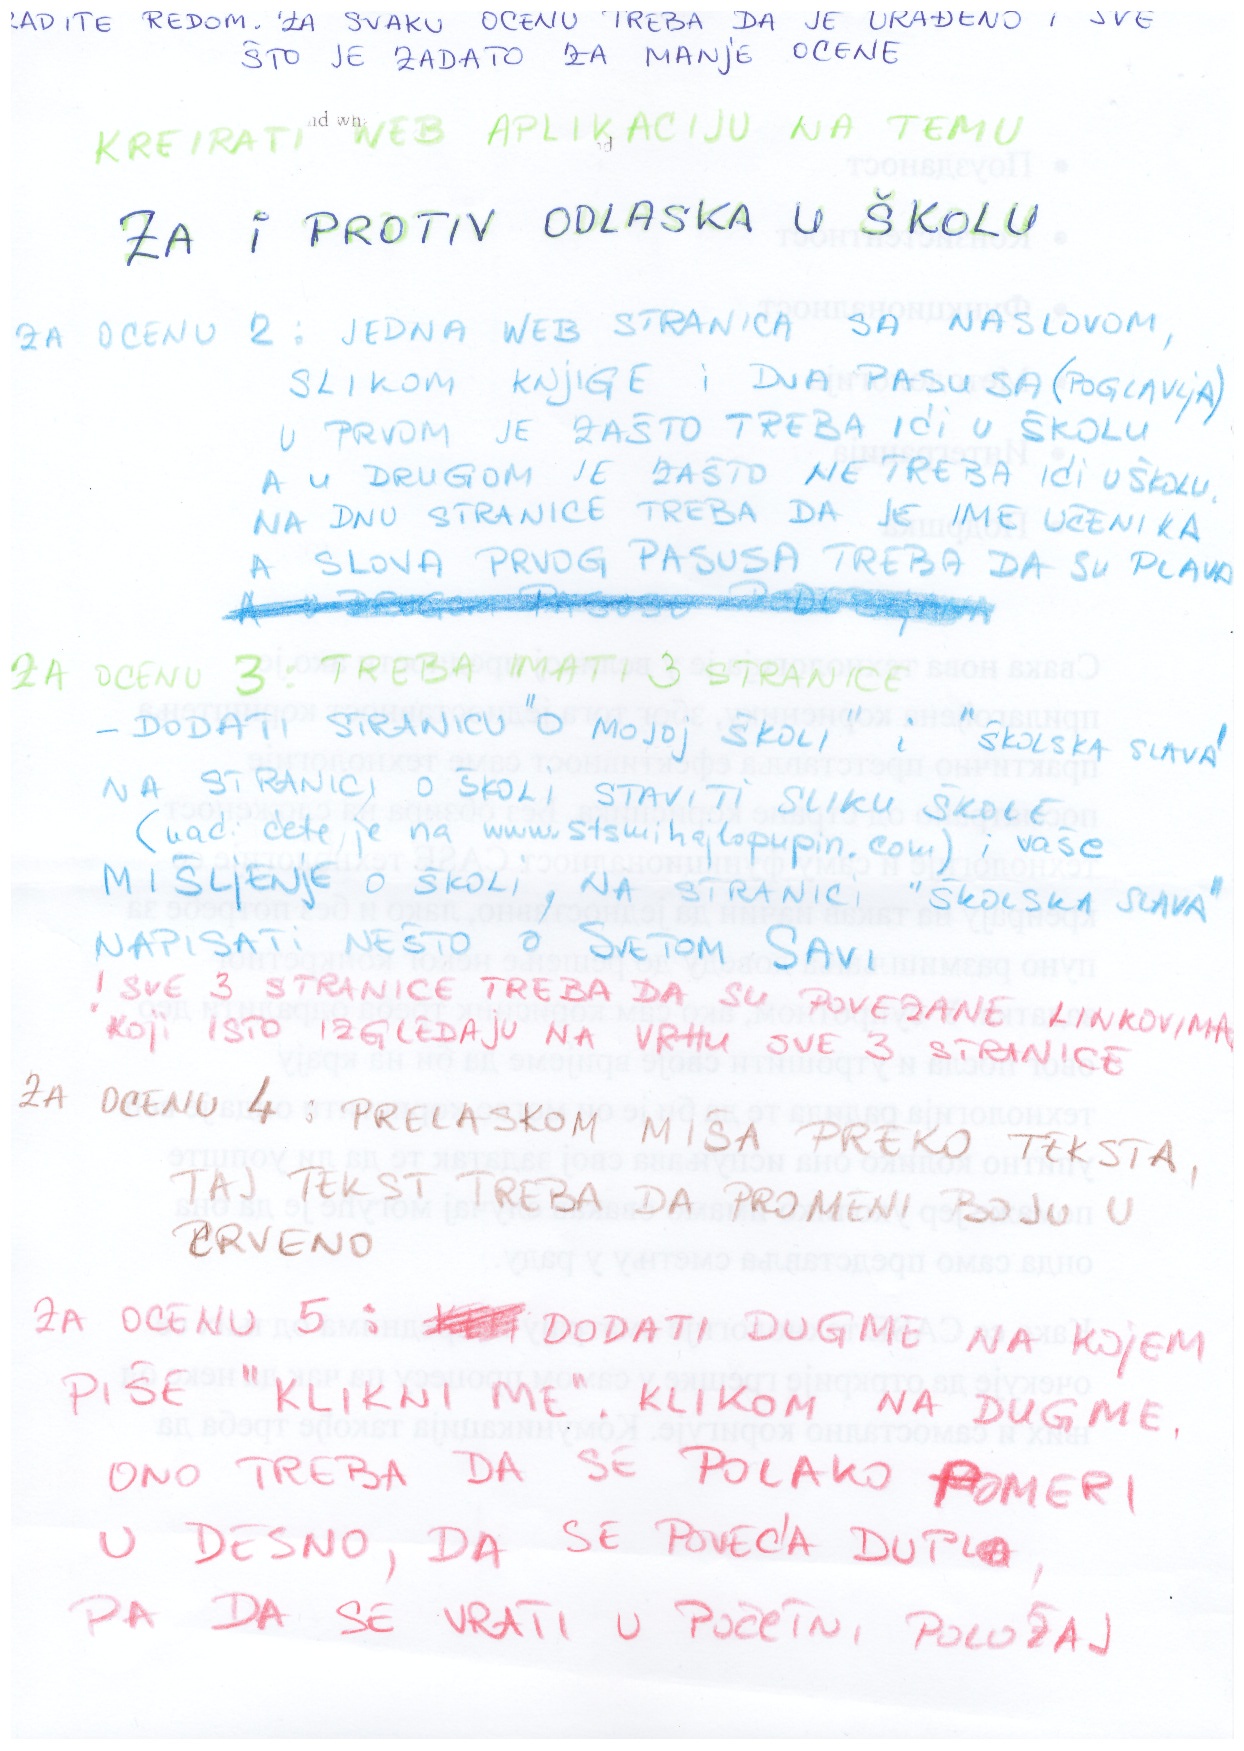 RADITE REDOM. ZA SVAKU OCENU TREBA DA JE URAĐENO I SVE
ŠTO JE ZADATO ZA MANJE OCENE
KREIRATI WEB APLIKACIJU NA TEMU
ZA i PROTIV ODLASKA U ŠKOLU
ZA OCENU 2: JEDNA WEB STRANICA SA NASLOVOM,
SLIKOM KNJIGE i DVA PASUSA (POGLAVLJA)
U PRVOM JE ZAŠTO TREBA IĆI U ŠKOLU
A U DRUGOM JE ZAŠTO NE TREBA IĆI U ŠKOLU.
NA DNU STRANICE TREBA DA JE IME UČENIKA
A SLOVA PRVOG PASUSA TREBA DA SU PLAVA
ZA OCENU 3: TREBA IMATI 3 STRANICE
- DODATI STRANICU "O MOJOJ ŠKOLI" i "ŠKOLSKA SLAVA"
NA STRANICI O ŠKOLI STAVITI SLIKU ŠKOLE
(naći ćete je na www.stsmihajlopupin.com) i vaše
MIŠLJENJE O ŠKOLI, NA STRANICI "ŠKOLSKA SLAVA"
NAPISATI NEŠTO O SVETOM SAVI
! SVE 3 STRANICE TREBA DA SU POVEZANE LINKOVIMA
KOJI ISTO IZGLEDAJU NA VRHU SVE 3 STRANICE
ZA OCENU 4: PRELASKOM MIŠA PREKO TEKSTA,
TAJ TEKST TREBA DA PROMENI BOJU U
CRVENO
ZA OCENU 5: DODATI DUGME NA KOJEM
PIŠE "KLIKNI ME". KLIKOM NA DUGME,
ONO TREBA DA SE POLAKO POMERI
U DESNO, DA SE POVEĆA DUPLO,
PA DA SE VRATI U POČETNI POLOŽAJ